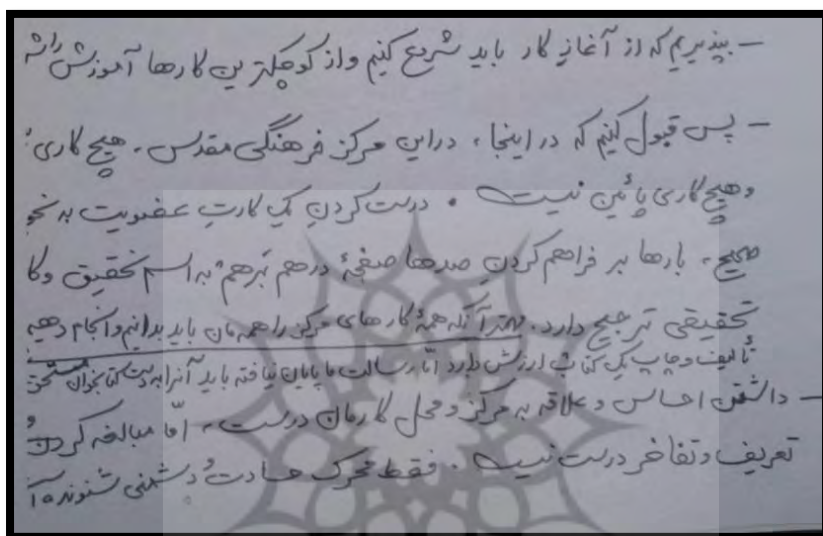 - بپذیریم که از آغازِ کار باید شروع کنیم و از کوچکترین کارها آموزش
- پس قبول کنیم که در اینجا، در این مرکز فرهنگی مقدس، هیچ کاری
و هیچ کاری پائین نیست. درست کردنِ یک کارتِ عضویت به نحو
صحیح، بارها بر فراهم کردنِ صدها صفحهٔ درهم برهم به اسم تحقیق و کا
تحقیقی ترجیح دارد. مهمتر آنکه همهٔ کارهای مرکز را همه‌مان باید بدانیم و انجام دهیم
تألیف و چاپ یک کتاب ارزش دارد امّا رسالت ما پایان نیافته باید آنرا به دست کتابخوان
- داشتن احساس و علاقه به مرکز و محل کارمان درست، امّا مبالغه کردن
تعریف و تفاخر درست نیست. فقط محرک حسادت و دشمنی شنونده